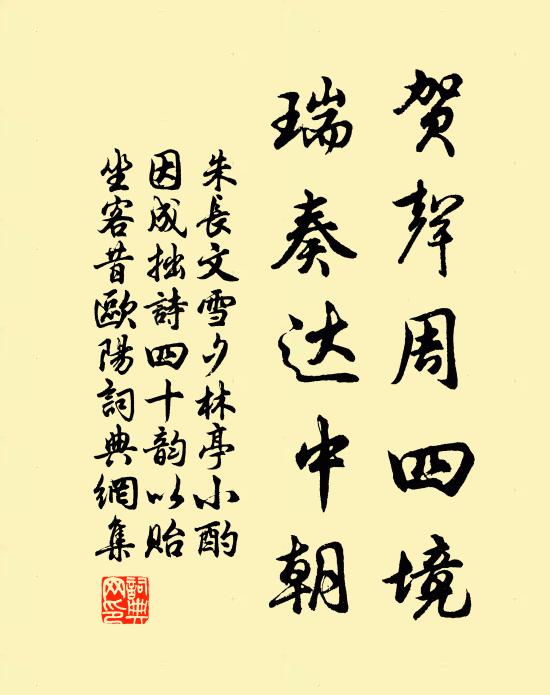 贺聲周四境
瑞奏达中朝
朱長文雪夕林亭小酌
因成拙詩四十韵以貽
坐客昔歐陽詞典網集
詞典網印